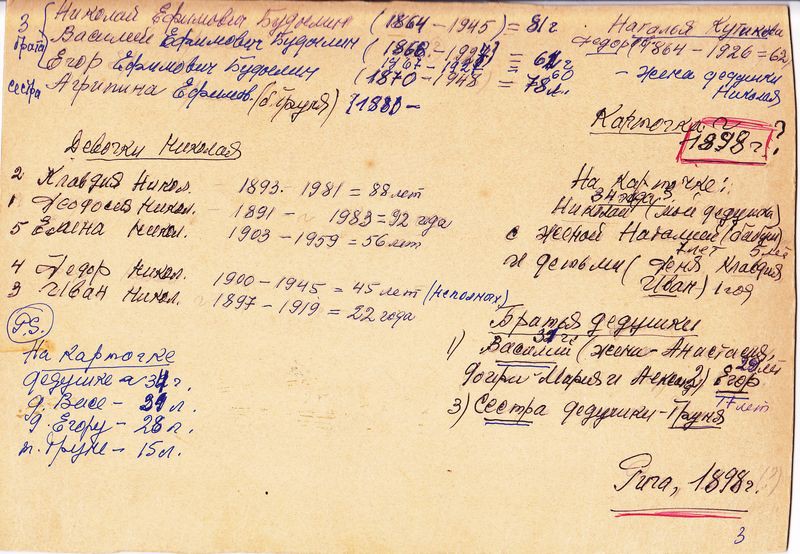 3 брата
Николай Ефимович Будылин (1864 – 1945) = 81 г
Василий Ефимович Будылин
1867 –
Егор Ефимович Будылин (1870 – 1948) = 78 л.
60
сестра Агрипина Ефимов. (б. Груня) {188
Наталья
Федор (1864 – 1926 = 62)
– жена дедушки
Николая
Карточка ?
1898 г.
Девочки Николая
2 Клавдия Никол. 1893 – 1981 = 88 лет
1 Феодосия Никол. 1891 – 1983 = 92 года
5 Елена Никол. 1903 – 1959 = 56 лет
4 Федор Никол. 1900 – 1945 = 45 лет (неполных)
3 Иван Никол. 1897 – 1919 = 22 года
На карточке:
34 года
Николай (мой дедушка)
с женой Наталией (бабушка)
7 лет 5 лет
и детьми (Феня Клавдия
Иван) 1 год
Братья дедушки
1) Василий (жена – Анастасия,
дочери Мария и ) Егор
28 лет
17 лет
3) Сестра дедушки – Груня
P.S.
На карточке
дедушке – 34 г.
д. Васе – 31 л.
д. Егору – 28 л.
т. Груне – 15 л.
Рига, 1898 г. (?)
3